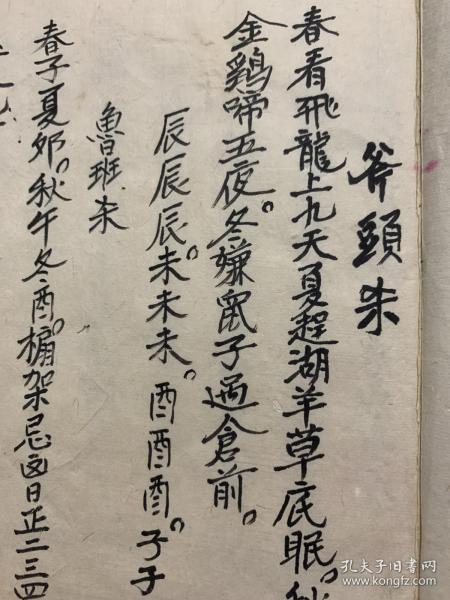 斧頭杀
春看飛龍上九天夏趕湖羊草底眠。秋
金鷄啼五夜。冬嫌鼠子過倉前。
辰辰辰。未未未。酉酉酉。子子
魯班杀
春子夏夘。秋午冬酉。架忌日正二三四
孔夫子旧书网
www.kongfz.com